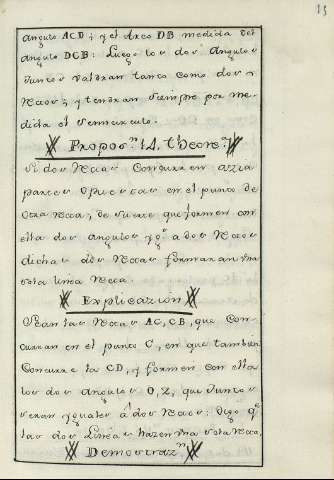 13
angulo ACD; y el Arco DB medida del
angulo DCB: Luego los dos angulos
Juntos valdran tanto como dos
Rectos; y tendran siempre por me-
dida el semicirculo.
Propos.n 14. theore.
Si dos Rectas concurren azzia
partes opuestas en el punto de
otra Recta, de suerte que formen con
ella dos angulos yg.s a dos Rectos
dichas dos Rectas formaran una
sola linea Recta.
Explicazion
Sean las Rectas AC, CB, que con-
curran en el punto C, en que tambien
concurre la CD, y formen con ella
los dos angulos O, Z, que Juntos
seran yguales â dos Rectos: digo q.e
las dos Lineas hazen una sola Recta.
Demostraz.n